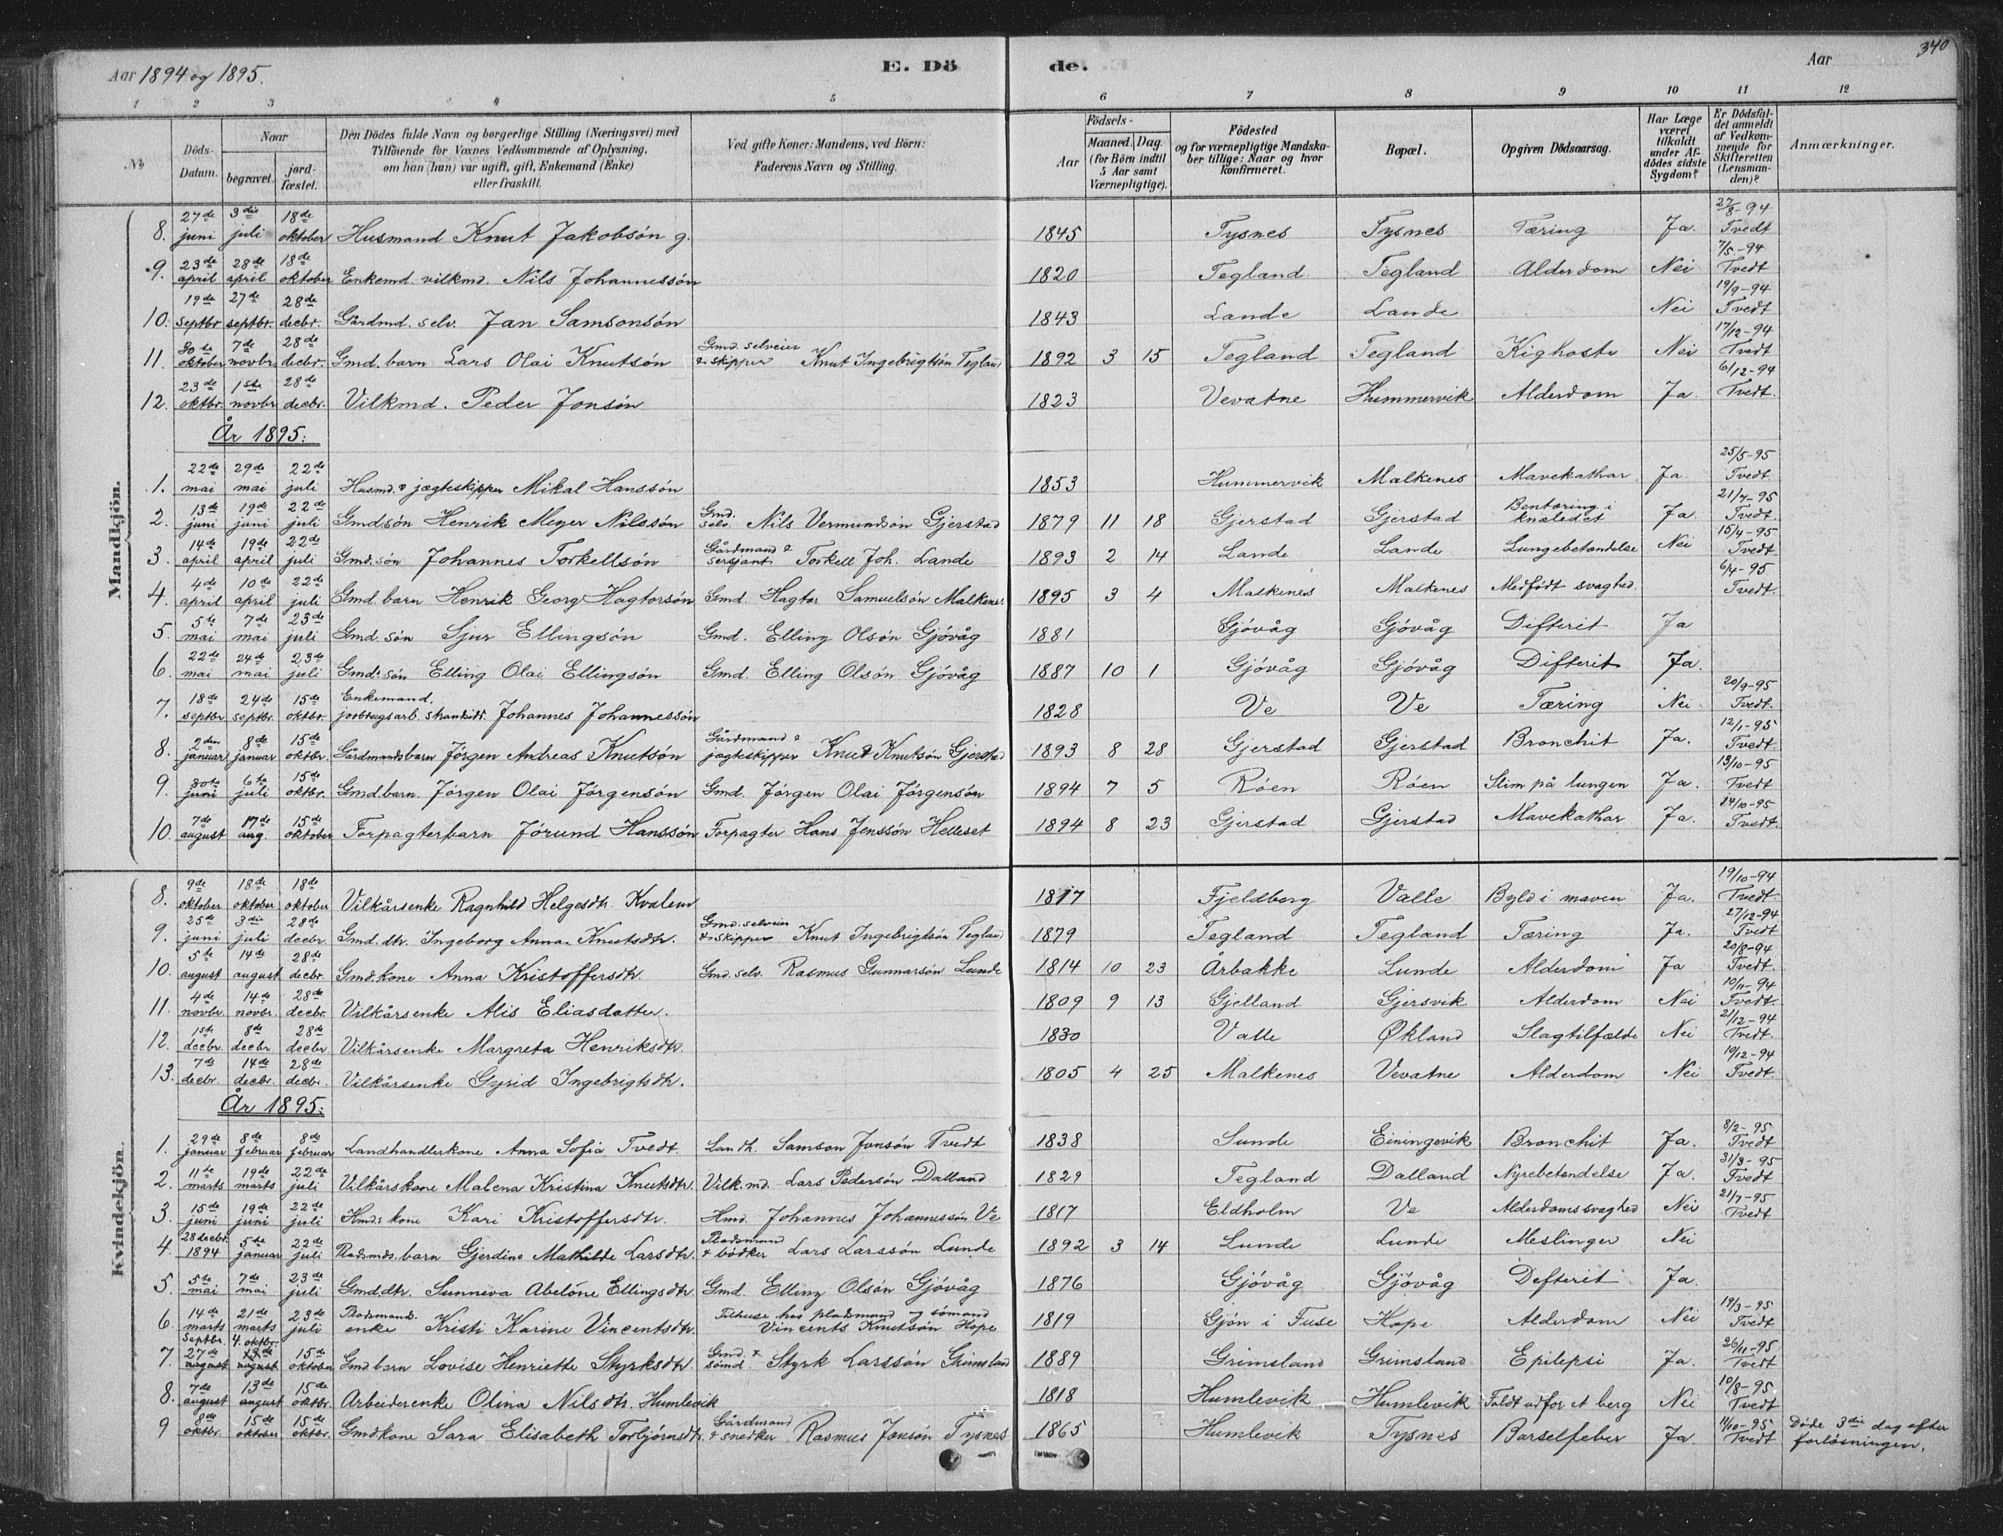 340
Aar 1894 og 1895. E. Dö de. Aar
1 2 3 4 5 6 7 8 9 10 11 12
No Döds-Datum. Naar begravet. jordfæstet. Den Dödes fulde Navn og borgerlige Stilling (Næringsvei) med Tilföiende for Voxnes Vedkommende af Oplysning, om han (hun) var ugift, gift, Enkemand (Enke) eller fraskilt. Ved gifte Koner: Mandens, ved Börn: Faderens Navn og Stilling. Födsels- Aar Maaned. Dag. (for Börn indtil 5 Aar samt Værnepligtige). Födested og for værnepligtige Mandskaber tillige: Naar og hvor konfirmeret. Bopæl. Opgiven Dödsaarsag. Har Læge været tilkaldt under Afdödes sidste Sygdom? Er Dödsfaldet anmeldt af Vedkommende for Skifteretten (Lensmanden)? Anmærkninger.
Mandkjön.
8. 27de juni 3die juli 18de oktober Husmand Knut Jakobsön g. 1845 Tysnes Tysnes Tæring Ja. 27/8-94 Tvedt
9. 23de april 28de april 18de oktober Enkemd. vilkmd. Nils Johannessön 1820 Tegland Tegland Alderdom Nei 7/5-94 Tvedt
10. 19de septbr. 27de septbr. 28de decbr. Gårdmd. selv. Jan Samsonsön 1843 Lande Lande Nei 19/9-94 Tvedt
11. 30te oktober 7de novbr 28de decbr. Gmd. barn Lars Olai Knutsön Gmd. selveier & skipper Knut Ingebrigtsön Tegland 1892 3 15 Tegland Tegland Kighoste Nei 17/12-94 Tvedt
12. 23de oktbr. 1ste novbr 28de decbr. Vilkmd. Peder Jonsön 1823 Vevatne Hummervik Alderdom Ja. 6/12-94 Tvedt.
År 1895:
1. 22de mai 29de mai 22de juli Husmd. & jægteskipper Mikal Hanssön 1853 Hummervik Malkenes Mavekathar Ja. 25/5-95 Tvedt.
2. 13de juni 19de juni 22de juli Gmdsön Henrik Meyer Nilssön Gmd. selv. Nils Vermundsön Gjerstad 1879 11 18 Gjerstad Gjerstad Bentæring i knæledet Ja. 21/7-95 Tvedt.
3. 14de april 19de april 22de juli Gmd. sön Johannes Torkellsön Gårdmand & sersjant Torkell Joh. Lande 1893 2 14 Lande Lande Lungebetændelse Nei 15/4-95 Tvedt.
4. 4de april 10de april 22de juli Gmd. barn Henrik Georg Hagtorsön Gmd. Hagtor Samuelsön Malkenes. 1895 3 4 Malkenes Malkenes Medfödt svaghed 6/4-95 Tvedt.
5. 5te mai 7de mai 23de juli Gmd. sön Sjur Ellingsön Gmd. Elling Olsön Gjövåg 1881 Gjövåg Gjövåg Difterit Ja
6. 22de mai 24de mai 23de juli Gmd. sön Elling Olai Ellingsön Gmd. Elling Olsön Gjövåg 1887 10 1 Gjövåg Gjövåg Difterit Ja.
7. 18de septbr 24de septbr. 15de oktbr. Enkemand, jorbrugsarb. strandsidr. Johannes Johannessön 1828 Ve Ve Tæring Nei 20/9-95 Tvedt.
8. 2den januar 8de januar 15de oktbr. Gårdmandsbarn Jörgen Andreas Knutsön Gårdmand & jægteskipper Knut Knutsön Gjerstad 1893 8 28 Gjerstad Gjerstad Bronchit Ja. 12/1-95 Tvedt.
9. 30te juni 6te juli 15de oktbr. Gmd. barn. Jörgen Olai Jörgensön Gmd. Jörgen Olai Jörgensön 1894 7 5 Röen Röen Slim på lungen Ja. 13/10-95 Tvedt
10. 7de august 17de aug. 15de oktober Forpagterbarn Jörund Hanssön Forpagter Hans Jenssön Helleset 1894 8 23 Gjerstad Gjerstad Mavekathar Ja. 24/10-95 Tvedt.
Kvindekjön.
8. 9de oktober 18de oktober 18de oktober Vilkårsenke Ragnhild Helgesdtr. Kvalem 1817 Fjeldberg Valle Byld i maven Ja. 19/10-94 Tvedt.
9. 25de juni 3die juli 28de decbr Gmd. dtr. Ingeborg Anna Knutsdtr. Gmd. selveier & skipper Knut Ingebrigtsön Tegland 1879 Tegland Tegland Tæring Ja. 27/12-94 Tvedt
10. 5te august 14de august 28de decbr. Gmdkone Anna Kristoffersdtr. Gmd. selv. Rasmus Gunnarsön Lunde 1814 10 23 Årbakke Lunde Alderdom Ja 20/8-94 Tvedt.
11. 4de novbr. 14de novbr. 28de decbr. Vilkårsenke Alis Eliasdatter. 1809 9 13 Gjelland Gjersvik Alderdom Nei 10/11-94 Tvedt.
12. 1ste decbr. 8de decbr 28de decbr Vilkårsenke Margreta Henriksdtr. 1830 Valle Økland Slagtilfælde Nei 21/12-94 Tvedt.
13. 7de decbr. 14de decbr. 28de decbr. Vilkårsenke Gyrid Ingebrigtsdtr. 1805 4 25 Malkenes Vevatne Alderdom Nei 19/12-94 Tvedt.
År 1895:
1. 29de januar 8de februar 8de februar Landhandlerkone Anna Sofia Tvedt. Landh. Samson Jonsön Tvedt 1838 Sunde Einingevik Bronchit Ja. 8/2-95 Tvedt
2. 11te marts 19de marts 22de juli Vilkårskone Malena Kristina Knutsdtr. Vilk. md. Lars Pedersön Dalland 1829 Tegland Dalland Nyrebetændelse Ja. 31/3-95 Tvedt
3. 15de juni 19de juni 22de juli Hmds kone Kari Kristoffersdtr. Hmd. Johannes Johannessön Ve 1817 Eldholm Ve Alderdomssvaghed Nei 21/7-95 Tvedt
4. 28 decbr. 1894 5te januar 22de juli Pladsmds. barn Gjerdine Mathilde Larsdtr. Pladsmand & bödker Lars Larssön Lunde 1892 3 14 Lunde Lunde Meslinger Nei
5. 5te mai 7de mai 23de juli Gmd. dtr. Sunneva Abelöne Ellingsdtr. Gmd. Elling Olsön Gjövåg 1876 Gjövåg Gjövåg Difterit Ja.
6. 14de marts 21de marts 23de juli Pladsmand. enke Kristi Karine Vincentsdtr. Tilhuse hos pladsmand og sömand Vincents Knutsön Hope 1819 Gjön i Fuse Hope Alderdom Nei 19/3-95 Tvedt.
7. septbr 27de august 4. oktbr. august 15de oktober Gmd barn Lovise Henriette Styrksdtr. Gmd. & sömd. Styrk Larsson Grimsland 1889 Grimsland Grimsland Epilepsi Ja. 26/11-95 Tvedt
8. 7de august 13de august 15de oktbr. Arbeiderenke Olina Nilsdtr. Humlevik 1818 Humlevik Humlevik Faldt udfor et berg Nei 10/8-95 Tvedt
9 8de oktbr. 15de oktober 15de oktober Gmdkone Sara Elisabeth Torbjörnsdtr. Gårdmand & snedker Rasmus Jonsön Tysnes 1865 Humlevik Tysnes Barselfeber Ja. 11/10-95 Tvedt Döde 3die dag efter forlösningen.